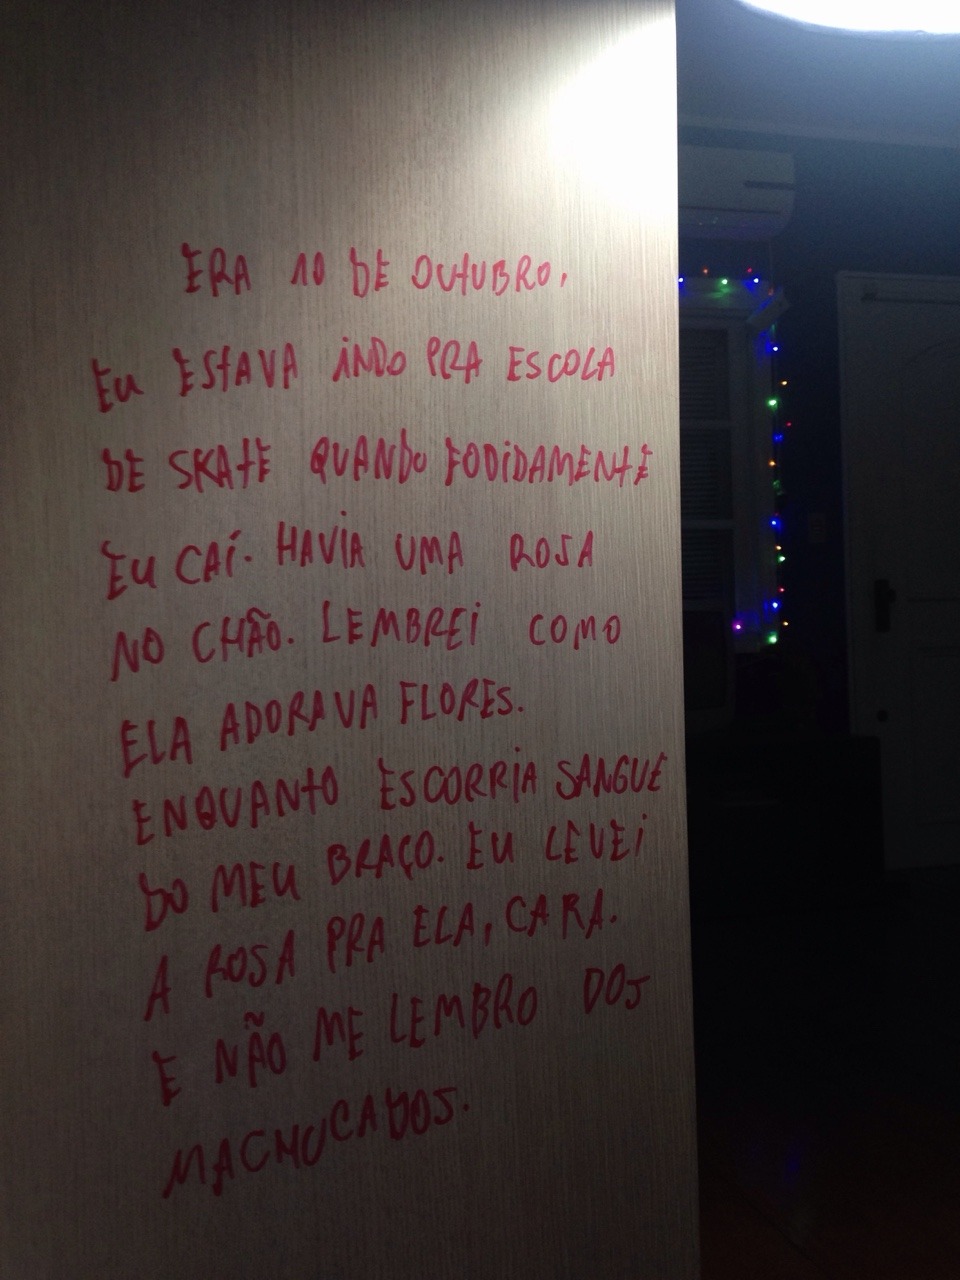 ERA 10 DE OUTUBRO,
EU ESTAVA INDO PRA ESCOLA
DE SKATE QUANDO FODIDAMENTE
EU CAÍ. HAVIA UMA ROSA
NO CHÃO. LEMBREI COMO
ELA ADORAVA FLORES.
ENQUANTO ESCORRIA SANGUE
DO MEU BRAÇO. EU LEVEI
A ROSA PRA ELA, CARA.
E NÃO ME LEMBRO DOS
MACHUCADOS.